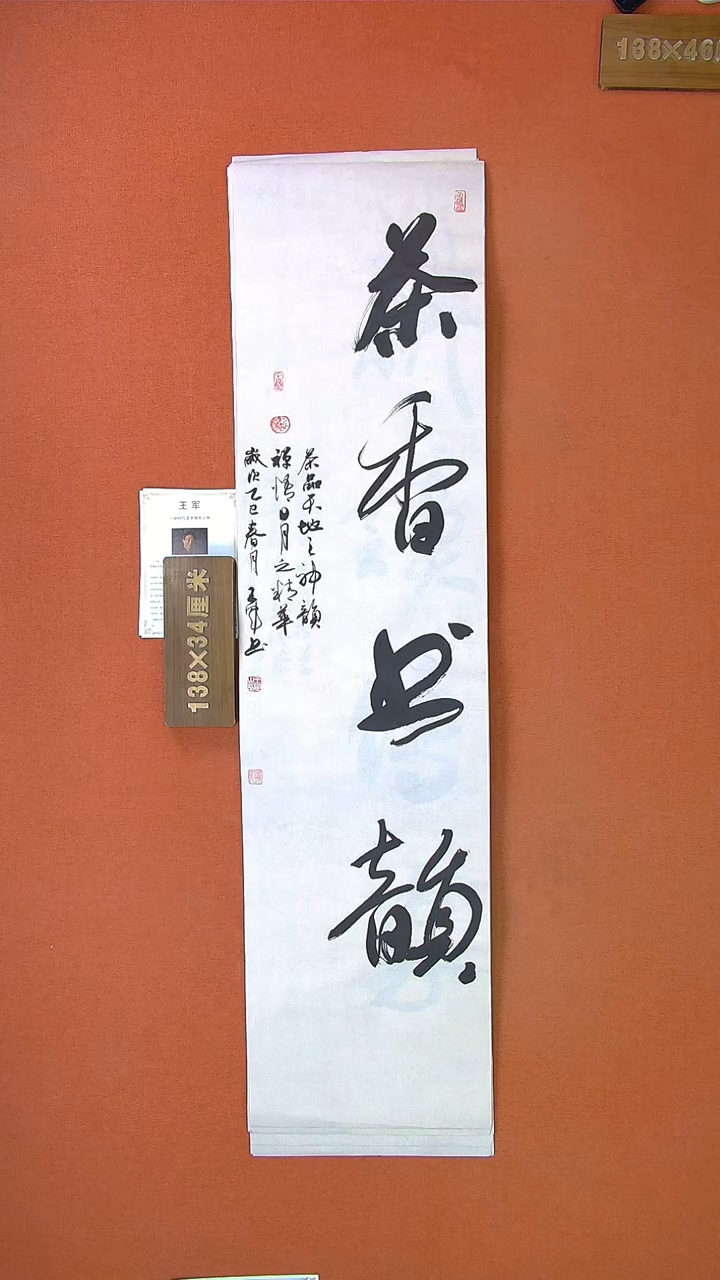 茶香书韵
茶品天地之神韻
禅情日月之精華
歲次乙巳春月 王军书
王军
138×34厘米
138×46